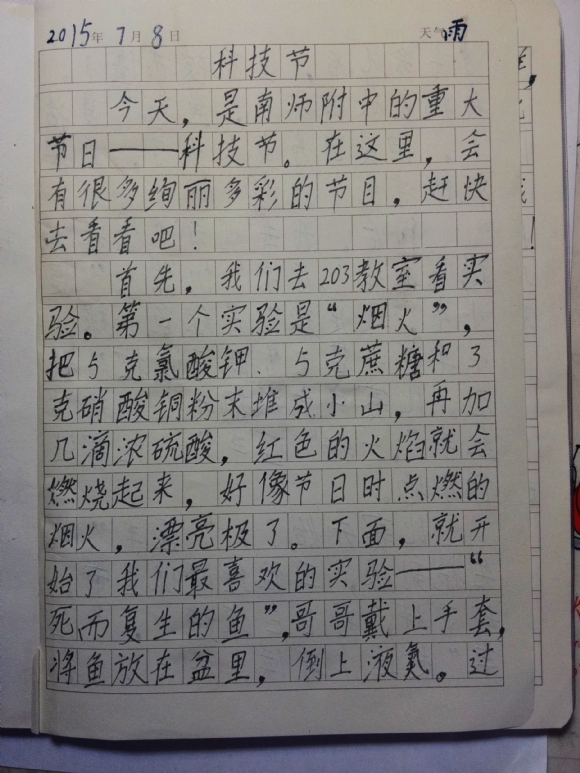 2015年7月8日 天气雨
科技节
今天，是南师附中的重大
节日——科技节。在这里，会
有很多绚丽多彩的节目，赶快
去看看吧！
首先，我们去203教室看实
验。第一个实验是“烟火”，
把5克氯酸钾、5克蔗糖和3
克硝酸铜粉末堆成小山，再加
几滴浓硫酸，红色的火焰就会
燃烧起来，好像节日时点燃的
烟火，漂亮极了。下面，就开
始了我们最喜欢的实验——“
死而复生的鱼”，哥哥戴上手套，
将鱼放在盆里，倒上液氮。过